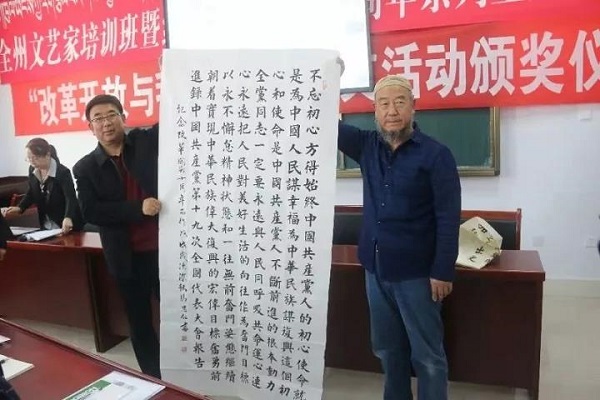 全州文艺家培训班暨
“改革开放与
活动颁奖仪
不忘初心方得始终中國共産黨人的初心使命就
是為中國人民謀幸福為中華民族謀復興這個初
心和使命是中國共産黨人不斷前進的根本動力
全黨同志一定要永遠與人民同呼吸共命運心連
心永遠把人民對美好生活的向往作為奮鬥目標
以永不懈怠精神狀態和一往無前奮鬥姿態繼續
朝着實現中華民族偉大復興的宏偉目標奮勇前
進録中國共産黨第十九次全國代表大會報告